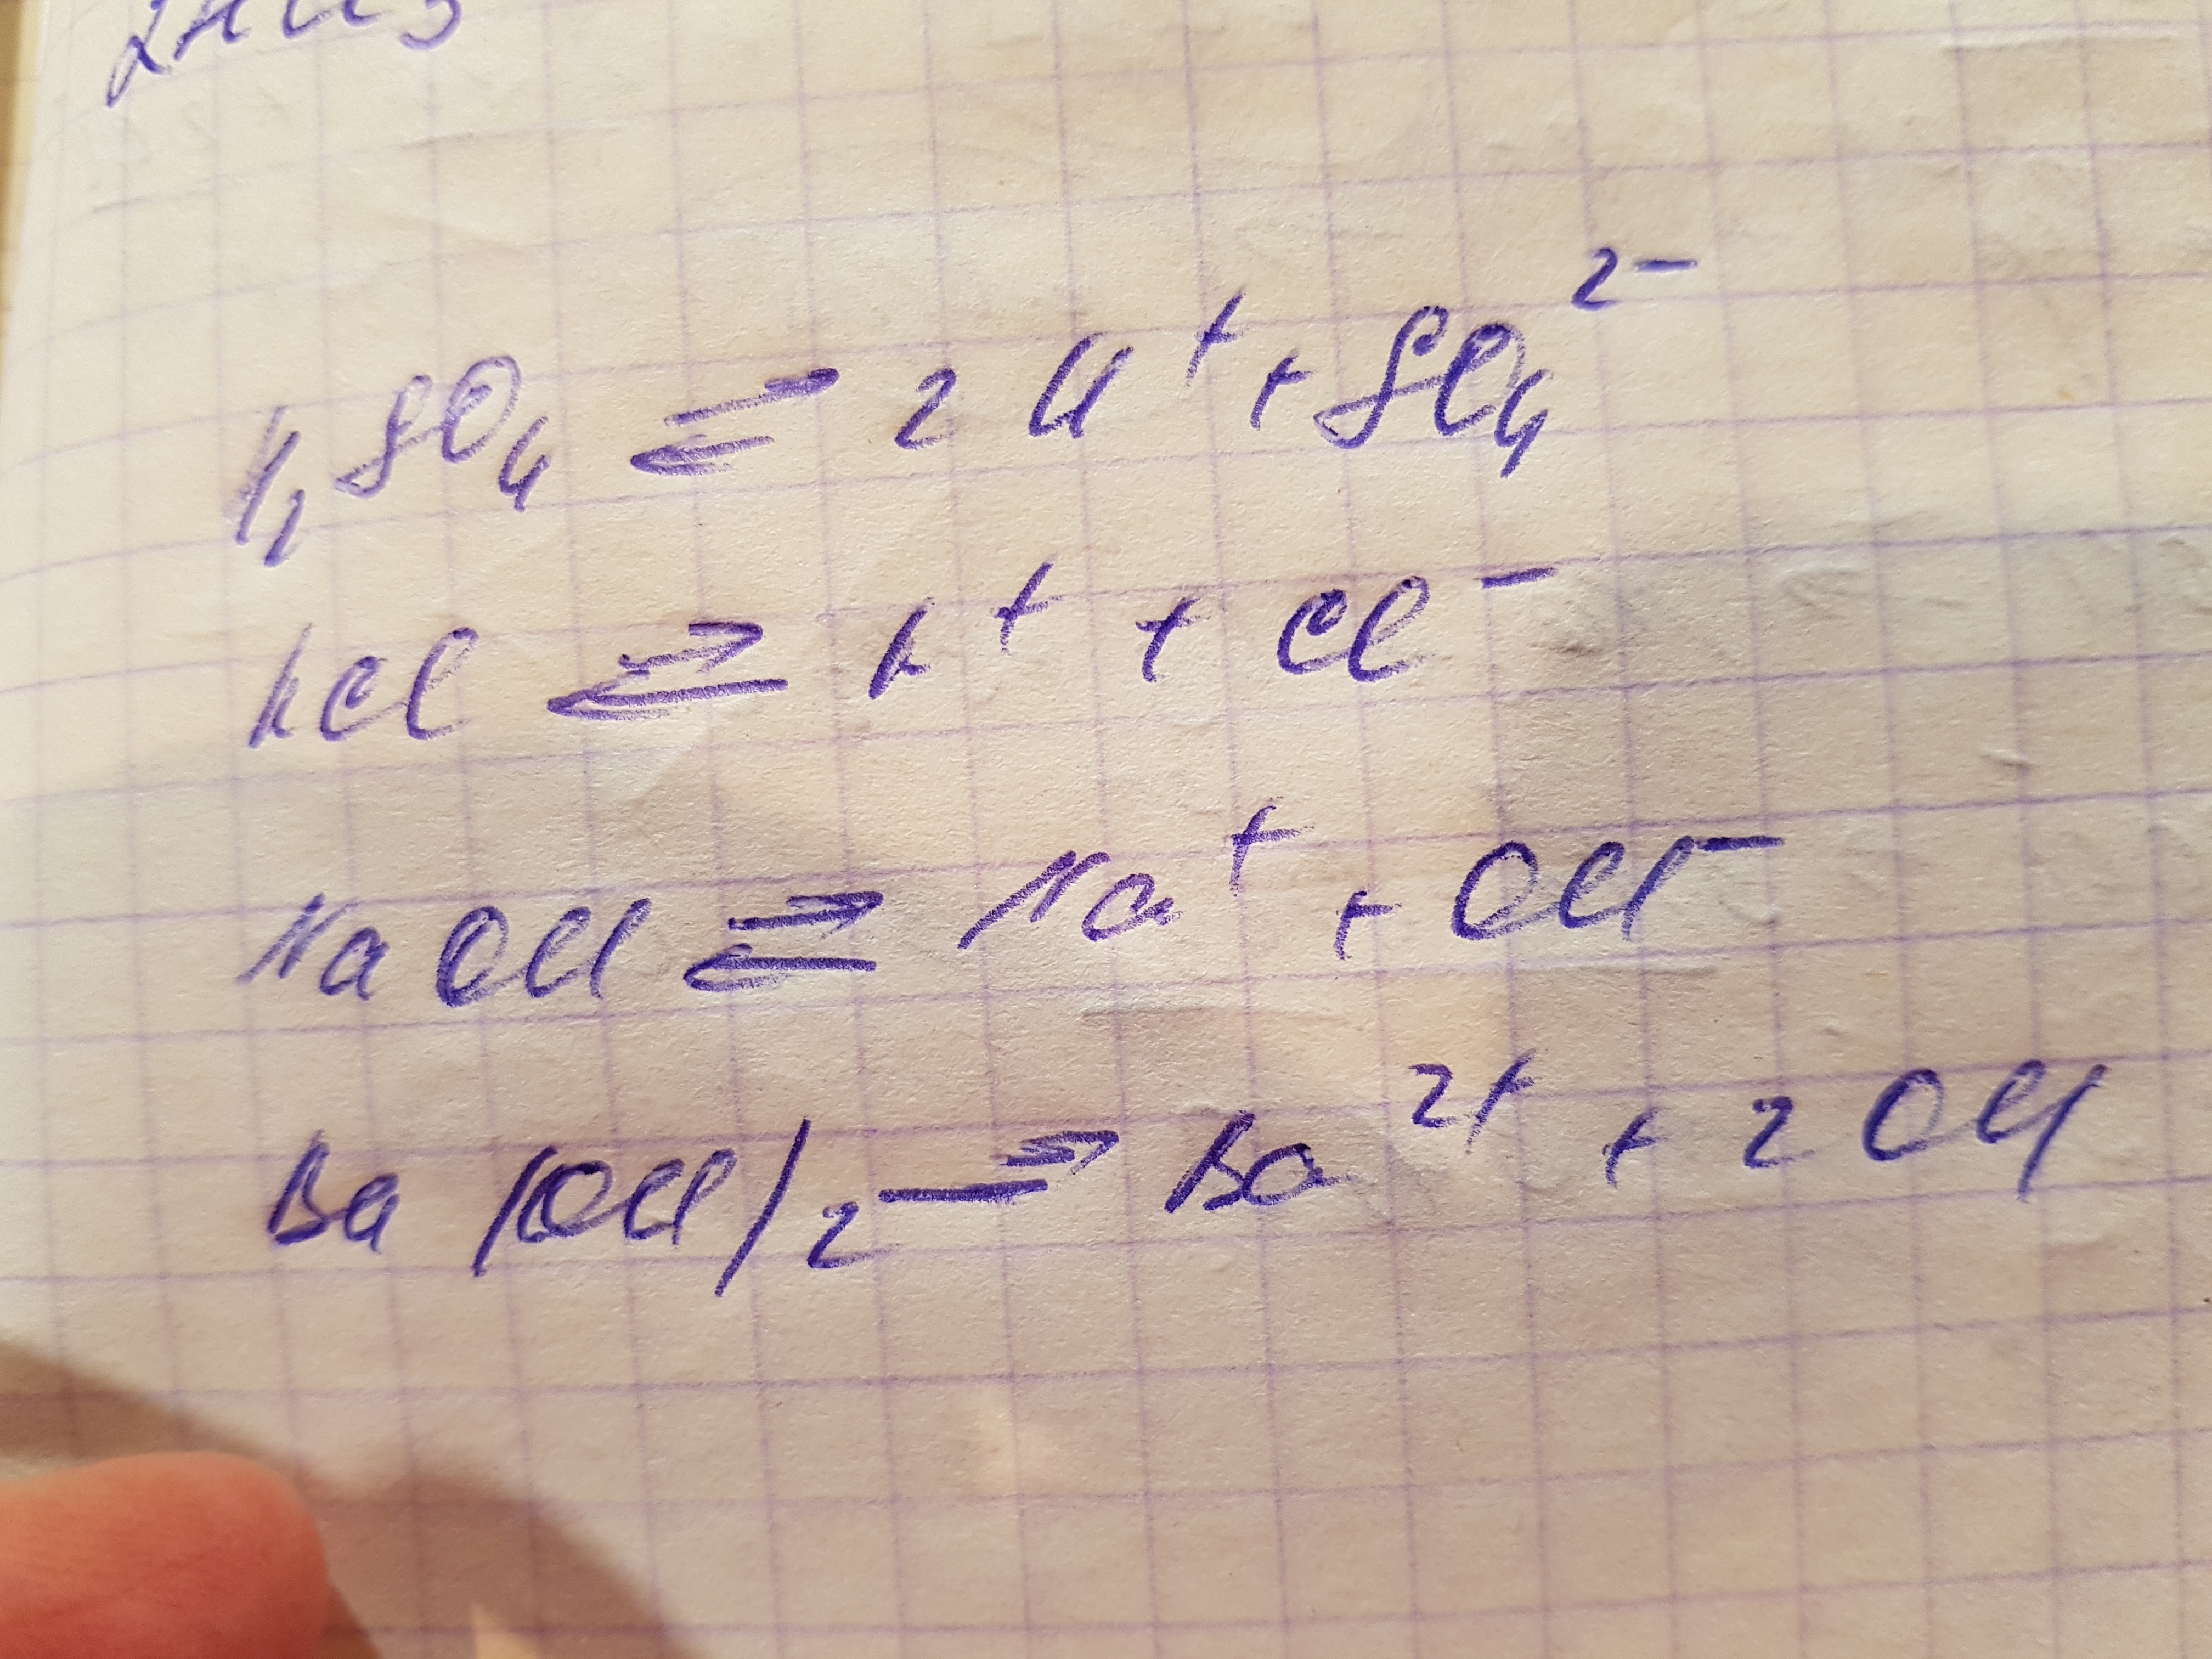 H₂SO₄ ⇌ 2H⁺ + SO₄²⁻
KCl ⇌ K⁺ + Cl⁻
NaOH ⇌ Na⁺ + OH⁻
Ba(OH)₂ → Ba²⁺ + 2OH